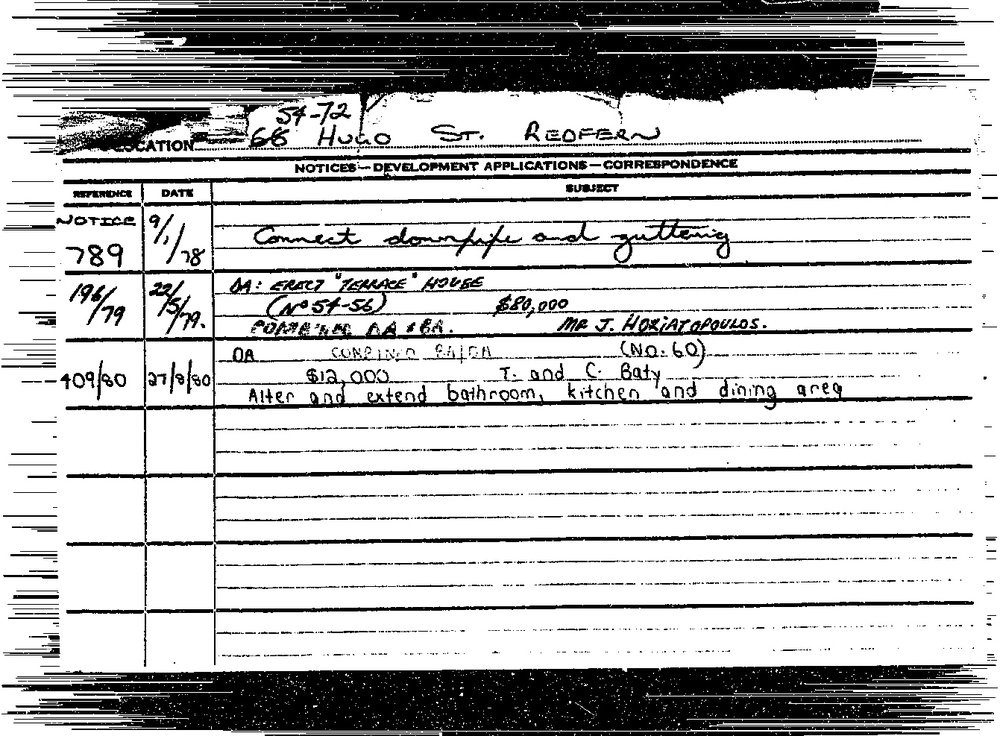 54-72
LOCATION 66 HUGO ST. REDFERN
NOTICES—DEVELOPMENT APPLICATIONS—CORRESPONDENCE
REFERENCE DATE SUBJECT
NOTICE 789 9/1/78 Connect downpipe and guttering
196/79 22/5/79. DA: ERECT "TERRACE" HOUSE
(Nº 54-56) $80,000
COMBINED DA & BA. MR J. HORIATOPOULOS.
DA COMBINED BA/DA (NO. 60)
409/80 27/8/80 $12,000 T. and C. Baty
Alter and extend bathroom, kitchen and dining area